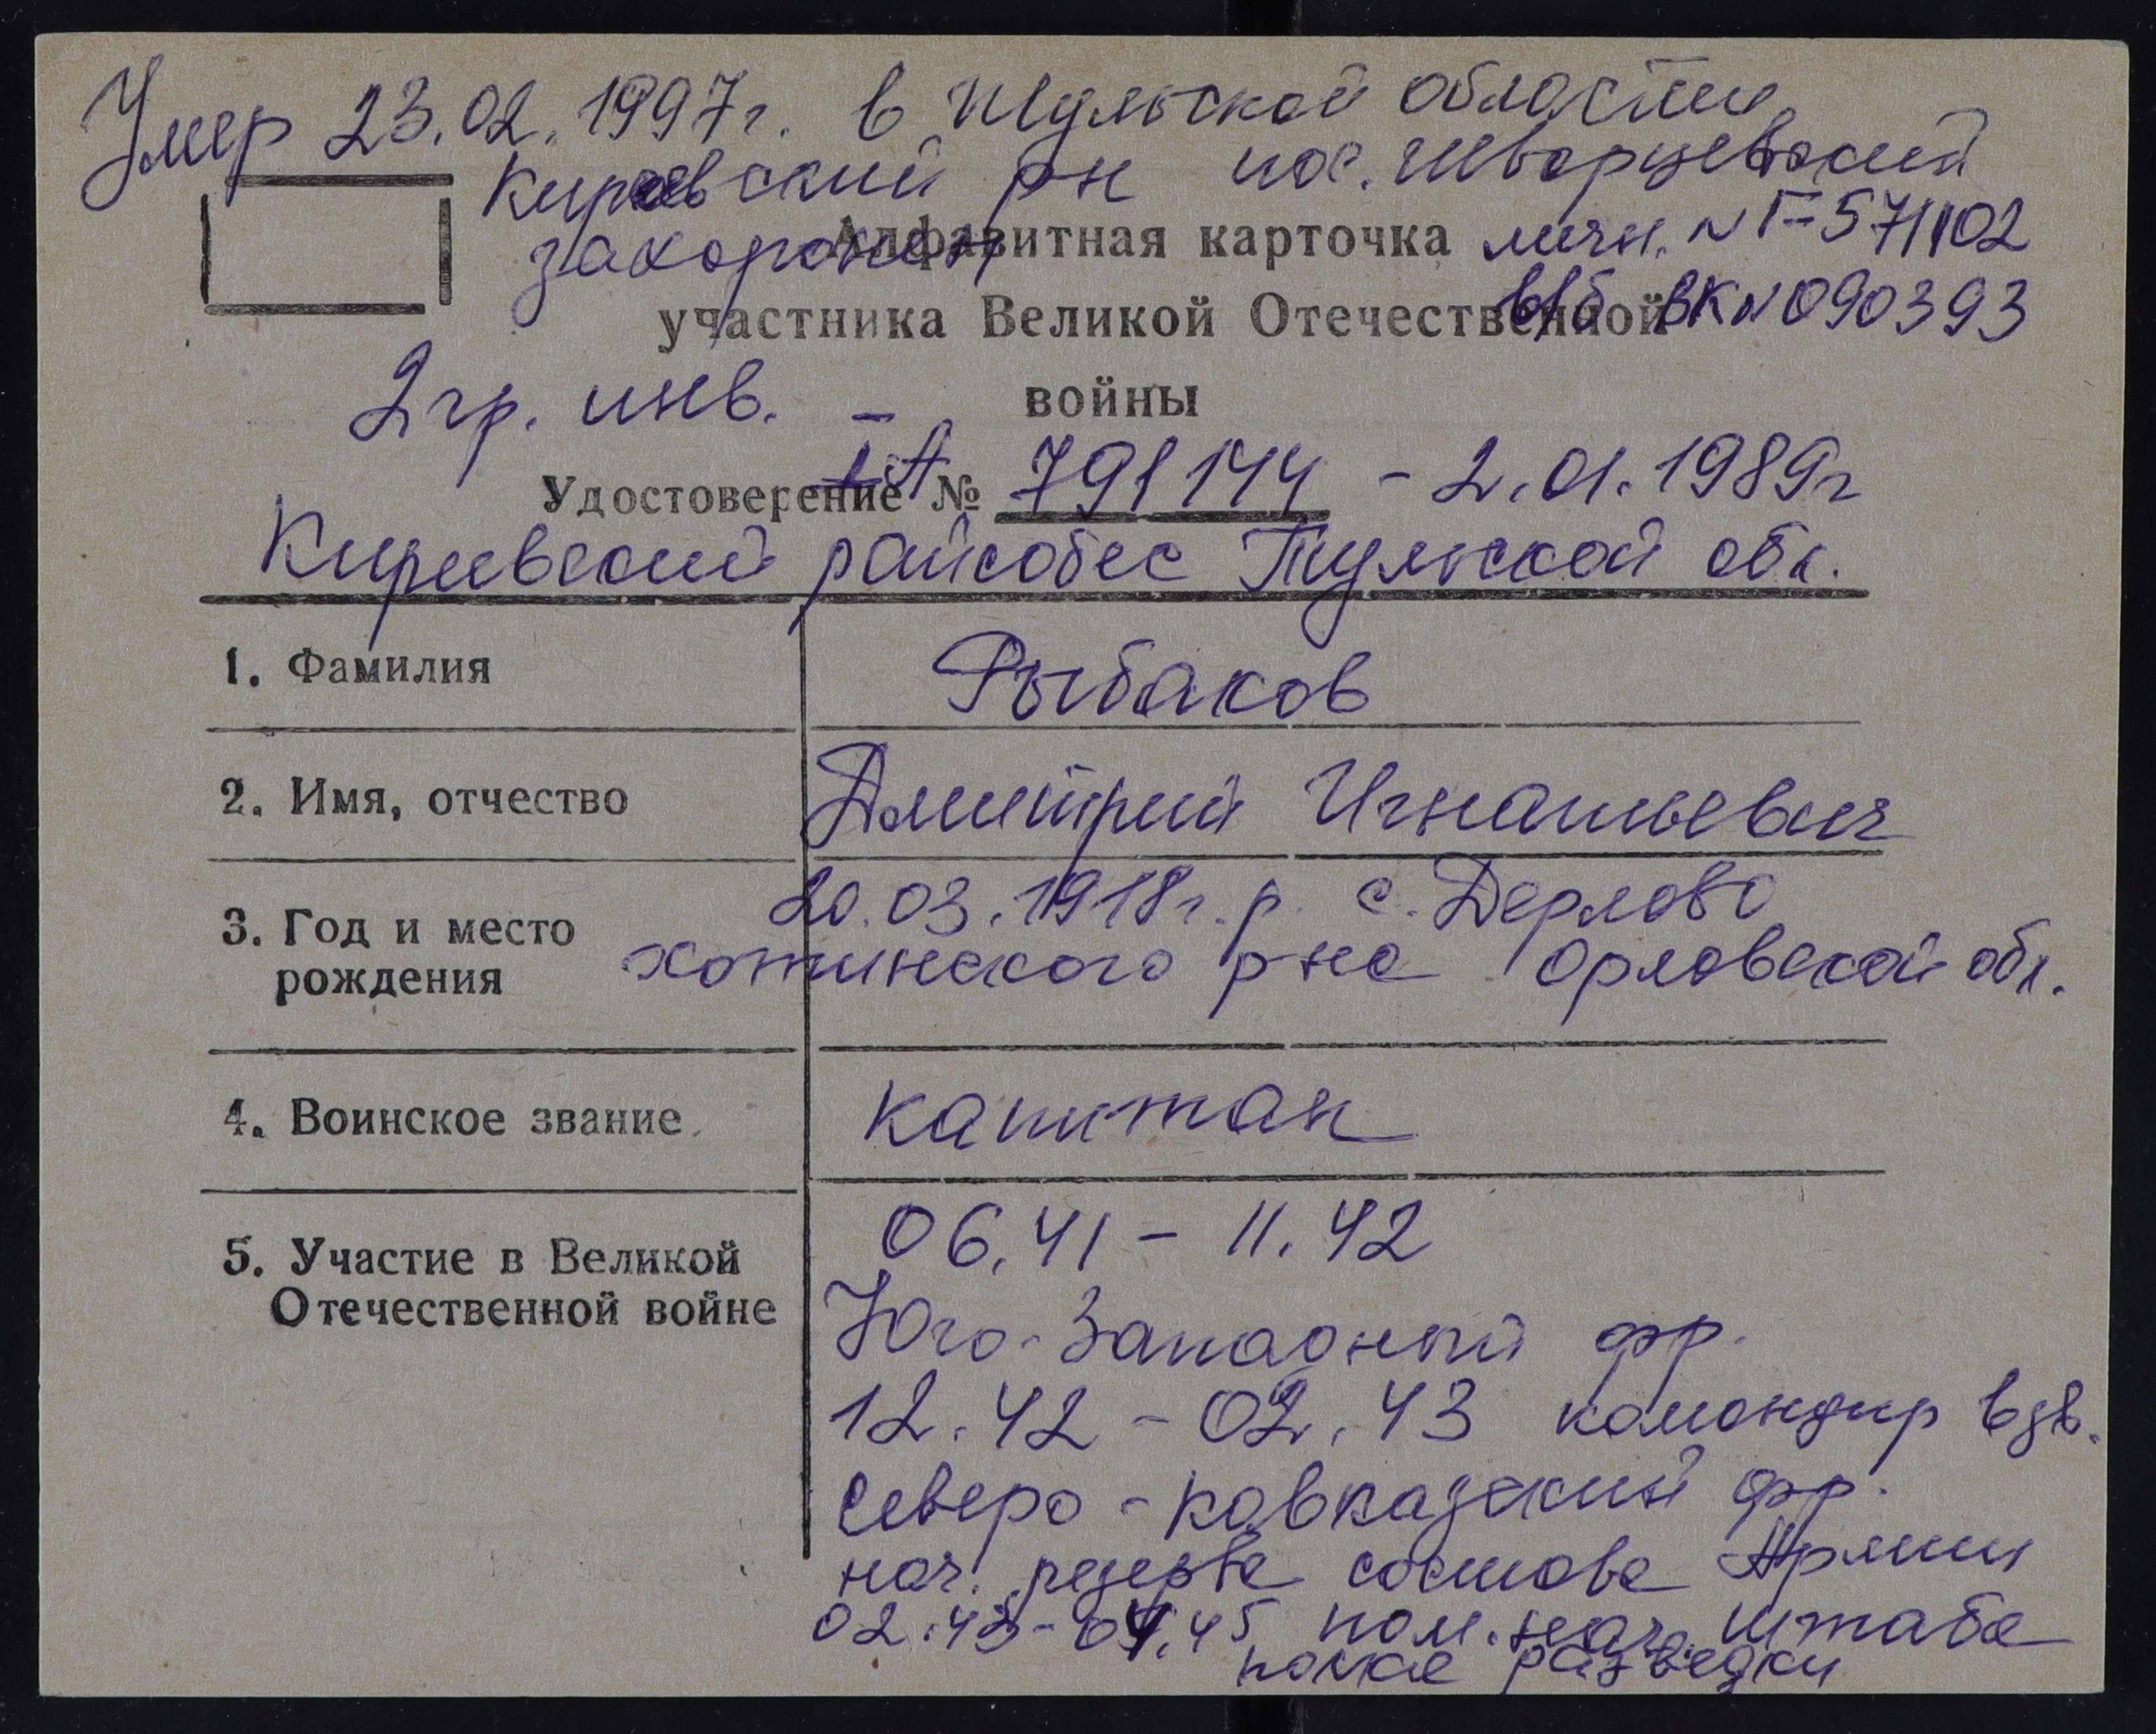 Умер 23.02.1997г. в Тульской области
Киреевский рн пос. Шварцевский
захоронен
Алфавитная карточка личн. № Г-571102
участника Великой Отечественной в/б ВК № 090393
2 гр. инв. - войны
Удостоверение IА № 791144 - 2.01.1989г
Киреевский райсобес Тульской обл.
1. Фамилия Рыбаков
2. Имя, отчество Дмитрий Игнатьевич
3. Год и место 20.03.1918г.р. с. Дерлово
рождения хотинского р на Орловской обл.
4. Воинское звание капитан
5. Участие в Великой 06.41 - 11.42
Отечественной войне Юго-Западный фр.
12.42 - 02.43 командир взв.
Северо-Кавказский фр.
нач. резерва состава Армии
02.43- .45 пом. нач. штаба
полка разведки